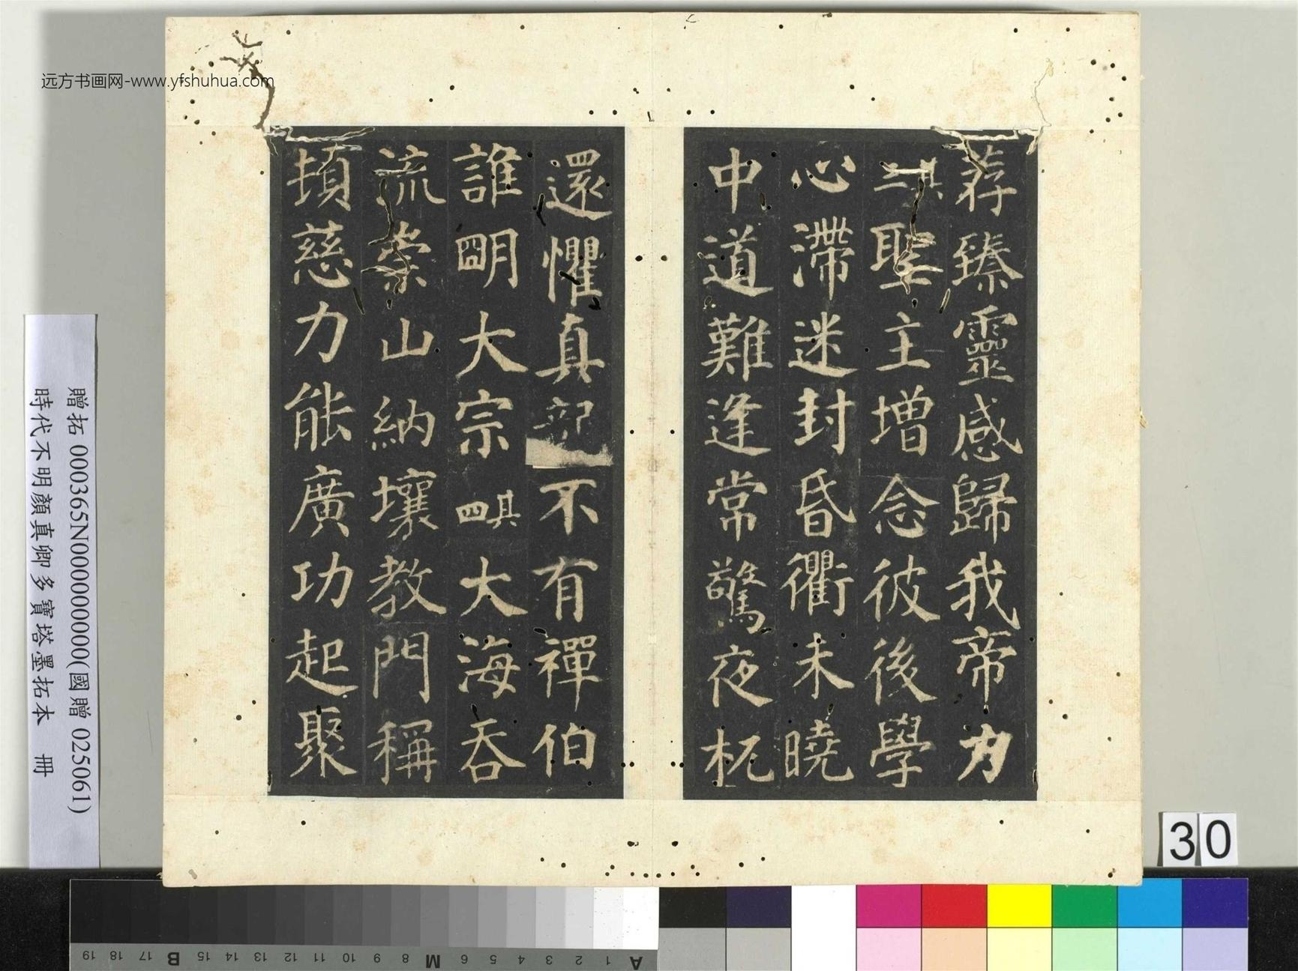 远方书画网-www.yfshuhua.com
荐臻靈感歸我帝力
其三聖主增念彼後學
心滯迷封昏衢未曉
中道難逢常驚夜杌
還懼真不有禪伯
誰明大宗其四大海吞
流崇山納壤教門稱
頓慈力能廣功起聚
贈拓 000365N000000000(國贈 025061)
時代不明顏真卿多寶塔墨拓本 冊
30
19 18 17 B 15 14 13 12 11 10 9 8 M 6 5 4 3 2 1 A